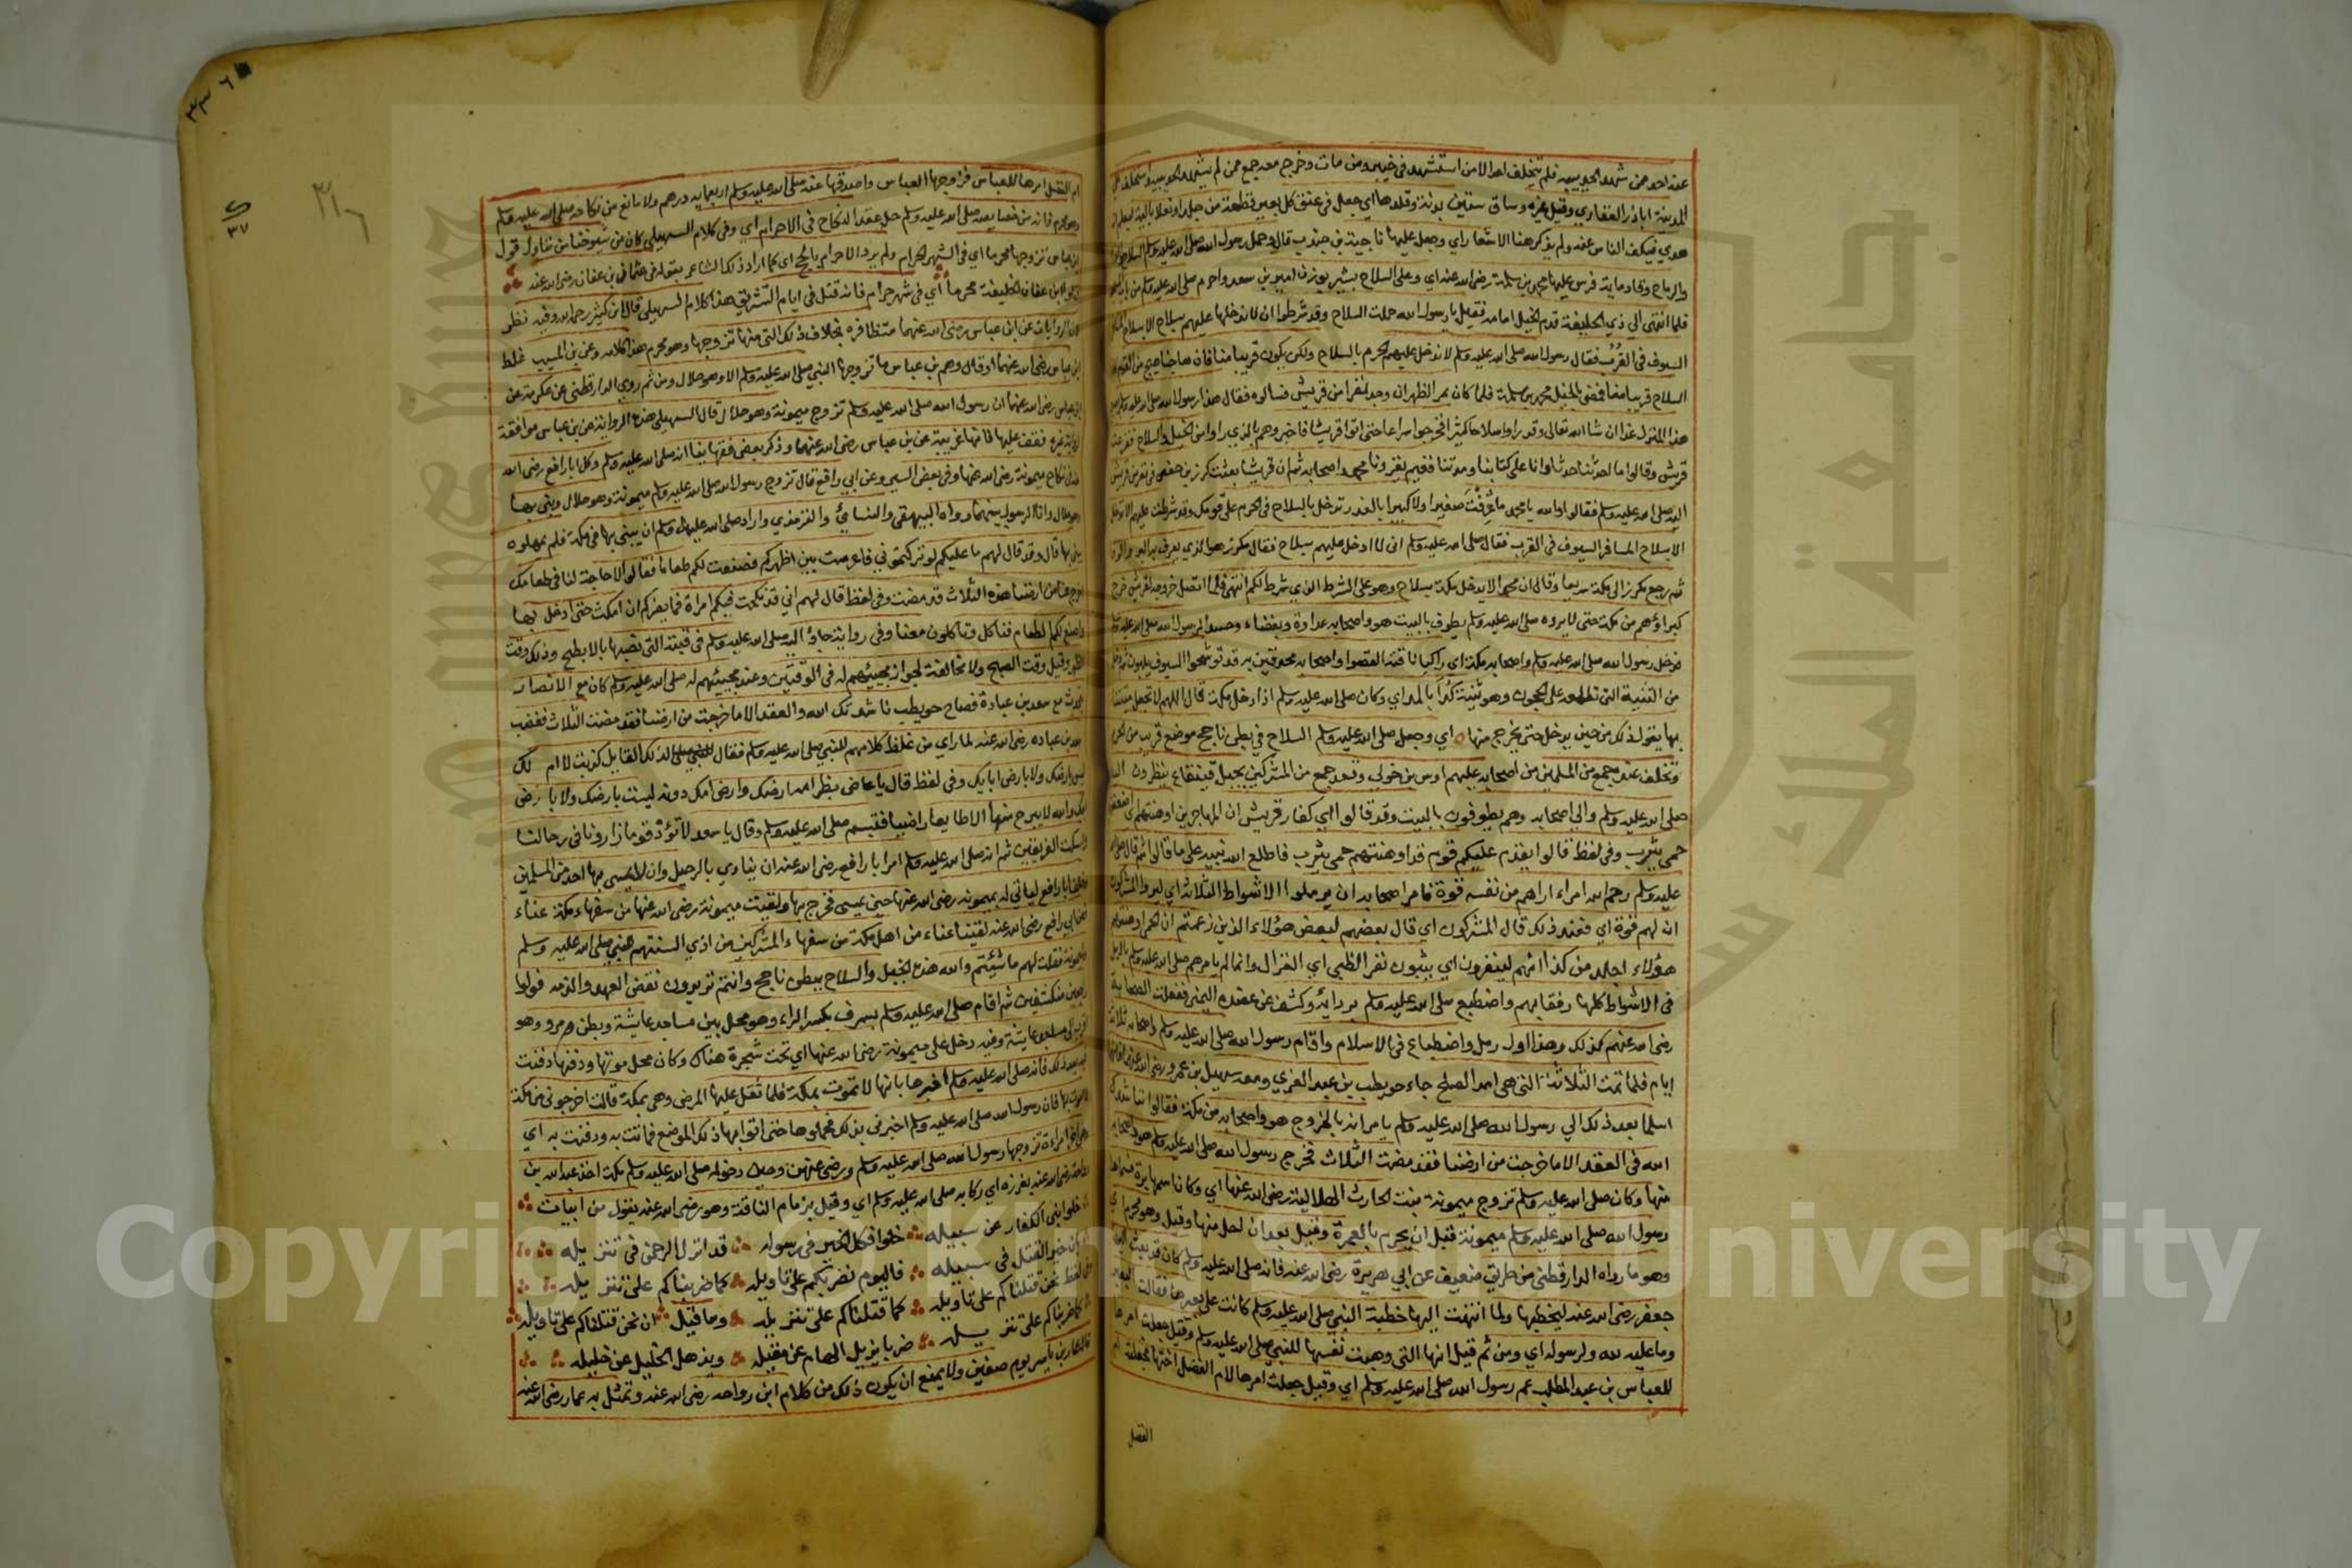 عنه احد ممن شهد الحديبية فلم يتخلف احد الا من استشهد في خيبر ومن مات وخرج معه جمع ممن لم يشهد الحديبية واستخلف على
المدينة اباذر الغفاري وقيل غيره وساق ستين بدنة وقلدها اي جعل في عنق كل بعير قطعة من جلد او نعلا بالية ليعلم انه
هدي فيكف الناس عنه ولم يذكر هنا الاشعار اي وجعل عليها ناجية بن جندب قال وحمل رسول الله صلى الله عليه وسلم السلاح
والرماح وقاد ماية فرس عليها محمد بن مسلمة رضي الله عنه اي وعلى السلاح بشير بوزن امير بن سعد واحرم صلى الله عليه وسلم من باب
فلما انتهى الي ذي الحليفة قدم الخيل امامه فقيل يا رسول الله حملت السلاح وقد شرطوا ان لا ندخلها عليهم بسلاح الا بسلاح
السيوف في القرب فقال رسول الله صلى الله عليه وسلم لا ندخل عليهم الحرم بالسلاح ولكن يكون قريبا منا فان هاجنا هيج من القوم كان
السلاح قريبا منا فمضى بالخيل محمد بن مسلمة فلما كان بمر الظهران وجد نفرا من قريش فسالوه فقال هذا رسول الله صلى الله عليه وسلم
هذا المنزل غدا ان شا الله تعالى وقد راوا سلاحا كثيرا فخرجوا سراعا حتى اتوا قريشا فاخبروهم بالذي راوا من الخيل والسلاح ففزعت
قريش وقالوا ما احدثنا حدثا وانا على كتابنا ومدتنا ففيم يغزونا محمد واصحابه ثم ان قريشا بعثت مكرز بن حفص في نفر من قريش
اليه صلى الله عليه وسلم فقالوا والله يا محمد ما عرفت صغيرا ولا كبيرا بالغدر تدخل بالسلاح في الحرم على قومك وقد شرطت عليهم ان لا تدخل
الا بسلاح المسافر السيوف في القرب فقال صلى الله عليه وسلم اني لا ادخل عليهم بسلاح فقال مكرز هو الذي يعرف به البر والوفا
ثم رجع مكرز الى مكة سريعا وقال ان محمدا لا يدخل مكة بسلاح وهو على الشرط الذي شرط لكم انتهى فلما اتصل خروجه لقريش خرج
كبراوهم من مكة حتى لا يروه صلى الله عليه وسلم يطوف بالبيت هو واصحابه عداوة وبغضاء وحسدا لرسول الله صلى الله عليه وسلم
فدخل رسول الله صلى الله عليه وسلم واصحابه مكة اي راكبا ناقته القصوا واصحابه محدقين به قد توشحوا السيوف يلبون ثم دخل
من الثنية التي تطلعه على الحجون وهو ثنية كداء بالمد اي وكان صلى الله عليه وسلم اذا دخل مكة قال اللهم لا تجعل منيتنا
بها يقول ذلك من حين يدخل حتى يخرج منها اي وجعل صلى الله عليه وسلم السلاح في بطن ناجح موضع قريب من الحرم
وتخلف عنده جمع من المسلمين من اصحابه عليهم اوس بن خولي وقعد جمع من المشركين بجبل قينقاع ينظرون اليه
صلى الله عليه وسلم والى اصحابه وهم يطوفون بالبيت وقد قالوا اي كفار قريش ان المهاجرين اوهنتهم اي اضعفتهم
حمى يثرب وفي لفظ قالوا يقدم عليكم قوم قد اوهنتهم حمى يثرب فاطلع الله نبيه على ما قالوا ثم قال صلى الله
عليه وسلم رحم الله امراء اراهم من نفسه قوة فامر اصحابه ان يرملوا الاشواط الثلاثة اي ليروا المشركون
ان لهم قوة اي فعند ذلك قال المشركون اي قال بعضهم لبعض هؤلاء الذين زعمتم ان الحمى اوهنتهم
هؤلاء اجلد من كذا انهم لينفرون اي يثبون نفر الظبي اي الغزال وانما لم يامرهم صلى الله عليه وسلم بالرمل
في الاشواط كلها رفقا بهم واضطبع صلى الله عليه وسلم بردايه وكشف عن عضده اليمنى ففعلت الصحابة
رضي الله عنهم كذلك وهذا اول رمل واضطباع في الاسلام واقام رسول الله صلى الله عليه وسلم واصحابه ثلاثة
ايام فلما تمت الثلاثة التي هي امد الصلح جاء حويطب بن عبد العزي ومعه سهيل بن عمرو رضي الله عنهما
اسلما بعد ذلك الي رسول الله صلى الله عليه وسلم يامرانه بالخروج هو واصحابه من مكة فقالوا نناشدك
الله في العقد الا ما خرجت من ارضنا فقد مضت الثلاث فخرج رسول الله صلى الله عليه وسلم هو واصحابه
منها وكان صلى الله عليه وسلم تزوج ميمونة بنت الحارث الهلالية رضي الله عنها اي وكان اسمها برة فسماها
رسول الله صلى الله عليه وسلم ميمونة قبل ان يحرم بالعمرة وقيل بعد ان احل منها وقيل وهو محرم اي
وهو ما رواه الدارقطني من طريق ضعيف عن ابي هريرة رضي الله عنه فانه صلى الله عليه وسلم كان قد بعث اليها
جعفر رضي الله عنه ليخطبها ولما انتهت اليها خطبة النبي صلى الله عليه وسلم كانت على بعيرها فقالت البعير
وما عليه لله ولرسوله اي ومن ثم قيل انها التي وهبت نفسها للنبي صلى الله عليه وسلم وقيل جعلت امرها
للعباس بن عبد المطلب عم رسول الله صلى الله عليه وسلم اي وقيل جعلت امرها لام الفضل اختها فجعلت ام
الفضل
٣٣٦
٣١٦
٣٧
ام الفضل امرها للعباس فزوجها العباس واصدقها عنه صلى الله عليه وسلم اربعماية درهم ولا مانع من نكاحه صلى الله عليه وسلم
وهو محرم فانه من خصايصه صلى الله عليه وسلم حل عقد النكاح في الاحرام اي وفي كلام السهيلي كان من شيوخنا من يتاول قول
ابن عباس تزوجها محرما اي في الشهر الحرام ولم يرد الاحرام بالحج اي كما اراد ذلك الشاعر بقوله في عثمان بن عفان رضي الله عنه
قتلوا ابن عفان الخليفة محرما اي في شهر حرام فانه قتل في ايام التشريق هذا كلام السهيلي قال ابن كثير رحمه الله وفيه نظر
لان الروايات عن ابن عباس رضي الله عنهما متظافرة بخلاف ذلك التي منها تزوجها وهو محرم هذا كلامه وعن بن المسيب غلط
ابن عباس رضي الله عنهما او قال وهم بن عباس ما تزوجها النبي صلى الله عليه وسلم الا وهو حلال ومن ثم روي الدارقطني عن عكرمة عن
ابن عباس رضي الله عنهما ان رسول الله صلى الله عليه وسلم تزوج ميمونة وهو حلال قال السهيلي هذه الرواية عن بن عباس موافقة
لرواية غيره فقف عليها فانها غريبة عن بن عباس رضي الله عنهما وذكر بعض فقهاينا انه صلى الله عليه وسلم وكل ابا رافع رضي الله
عنه في نكاح ميمونة رضي الله عنها وفي بعض السير وعن ابي رافع قال تزوج رسول الله صلى الله عليه وسلم ميمونة وهو حلال وبنى بها
وهو حلال وانا الرسول بينهما رواه البيهقي والنسائي والترمذي واراد صلى الله عليه وسلم ان يبني بها في مكة فلم يمهلوه
يبني بها قال وقد قال لهم ما عليكم لو تركتموني فاعرست بين اظهركم فصنعت لكم طعاما فقالوا لا حاجة لنا في طعامك
اخرج عنا من ارضنا هذه الثلاث قد مضت وفي لفظ قال لهم اني قد نكحت فيكم امراة فما يضركم ان امكث حتى ادخل بها
واصنع لكم الطعام فناكل وتاكلون معنا وفي رواية جاؤ اليه صلى الله عليه وسلم في قبته التي نصبها بالابطح وذلك وقت
الظهر وقيل وقت الصبح ولا مخالفة لجواز مجيئهم له في الوقتين وعند مجيئهم له صلى الله عليه وسلم كان مع الانصار
يتحدث مع سعد بن عبادة فصاح حويطب ناشدتك الله والعقد الا ما خرجت من ارضنا فقد مضت الثلاث فغضب
سعد بن عباده رضي الله عنه لما راي من غلظ كلامهم للنبي صلى الله عليه وسلم فقال لذلك القايل كذبت لا ام لك
ليس بارضك ولا بارض ابايك وفي لفظ قال يا عاض بظر امه ارضك وارض امك دونه ليست بارضك ولا بارض
ابيك والله لا يبرح منها الا طايعا راضيا فتبسم صلى الله عليه وسلم وقال يا سعد لا تؤذ قوما زارونا في رحالنا
واسكت الفريقين ثم انه صلى الله عليه وسلم امر ابا رافع رضي الله عنه ان ينادي بالرحيل وان لا يمسى بها احد من المسلمين
وخلف ابا رافع لياتي له بميمونه رضي الله عنها حين يمسى فخرج بها ولقيت ميمونة رضي الله عنها من سفهاء مكة عناء
فعن ابي رافع رضي الله عنه لقينا عناء من اهل مكة من سفهاء المشركين من اذي السنتهم للنبي صلى الله عليه وسلم
ولميمونة فقلت لهم ما شيئتم والله هذه الخيل والسلاح ببطن ناجح وانتم تريدون نقض العهد والمده فولوا
راجعين منكشفين ثم اقام صلى الله عليه وسلم بسرف بكسر الراء وهو محل بين مساجد عايشة وبطن مرو وهو
اقرب الى مساجد عايشة وفيه دخل على ميمونة رضي الله عنها اي تحت شجرة هناك وكان محل موتها ودفنها دفنت
فيه بعد ذلك فانه صلى الله عليه وسلم اخبرها بانها لا تموت بمكة فلما ثقل عليها المرض وهي بمكة قالت اخرجوني من مكة
لا اموت بها فان رسول الله صلى الله عليه وسلم اخبرني بذلك فحملوها حتى اتوا بها ذلك الموضع فماتت به ودفنت به اي
وهي اخر امراءة تزوجها رسول الله صلى الله عليه وسلم ورضي عنهن وحين دخوله صلى الله عليه وسلم مكة اخذ عبد الله بن
رواحة رضي الله عنه بغرزه اي ركابه صلى الله عليه وسلم اي وقيل بزمام الناقة وهو رضي الله عنه يقول من ابيات
خلوا بني الكفار عن سبيله خلوا فكل الخير في رسوله قد انزل الرحمن في تنزيله
بان خير القتل في سبيله فاليوم نضربكم على تاويله كما ضربناكم على تنزيله
وفي لفظ نحن قتلناكم على تاويله كما قتلناكم على تنزيله وما قيل ان نحن قتلناكم على تاويله
كما ضربناكم على تنزيله ضربا يزيل الهام عن مقيله ويذهل الخليل عن خليله
قاله عمار بن ياسر يوم صفين ولا يمنع ان يكون ذلك من كلام ابن رواحه رضي الله عنه وتمثل به عمار رضي الله عنه
Copyright © King Saud University